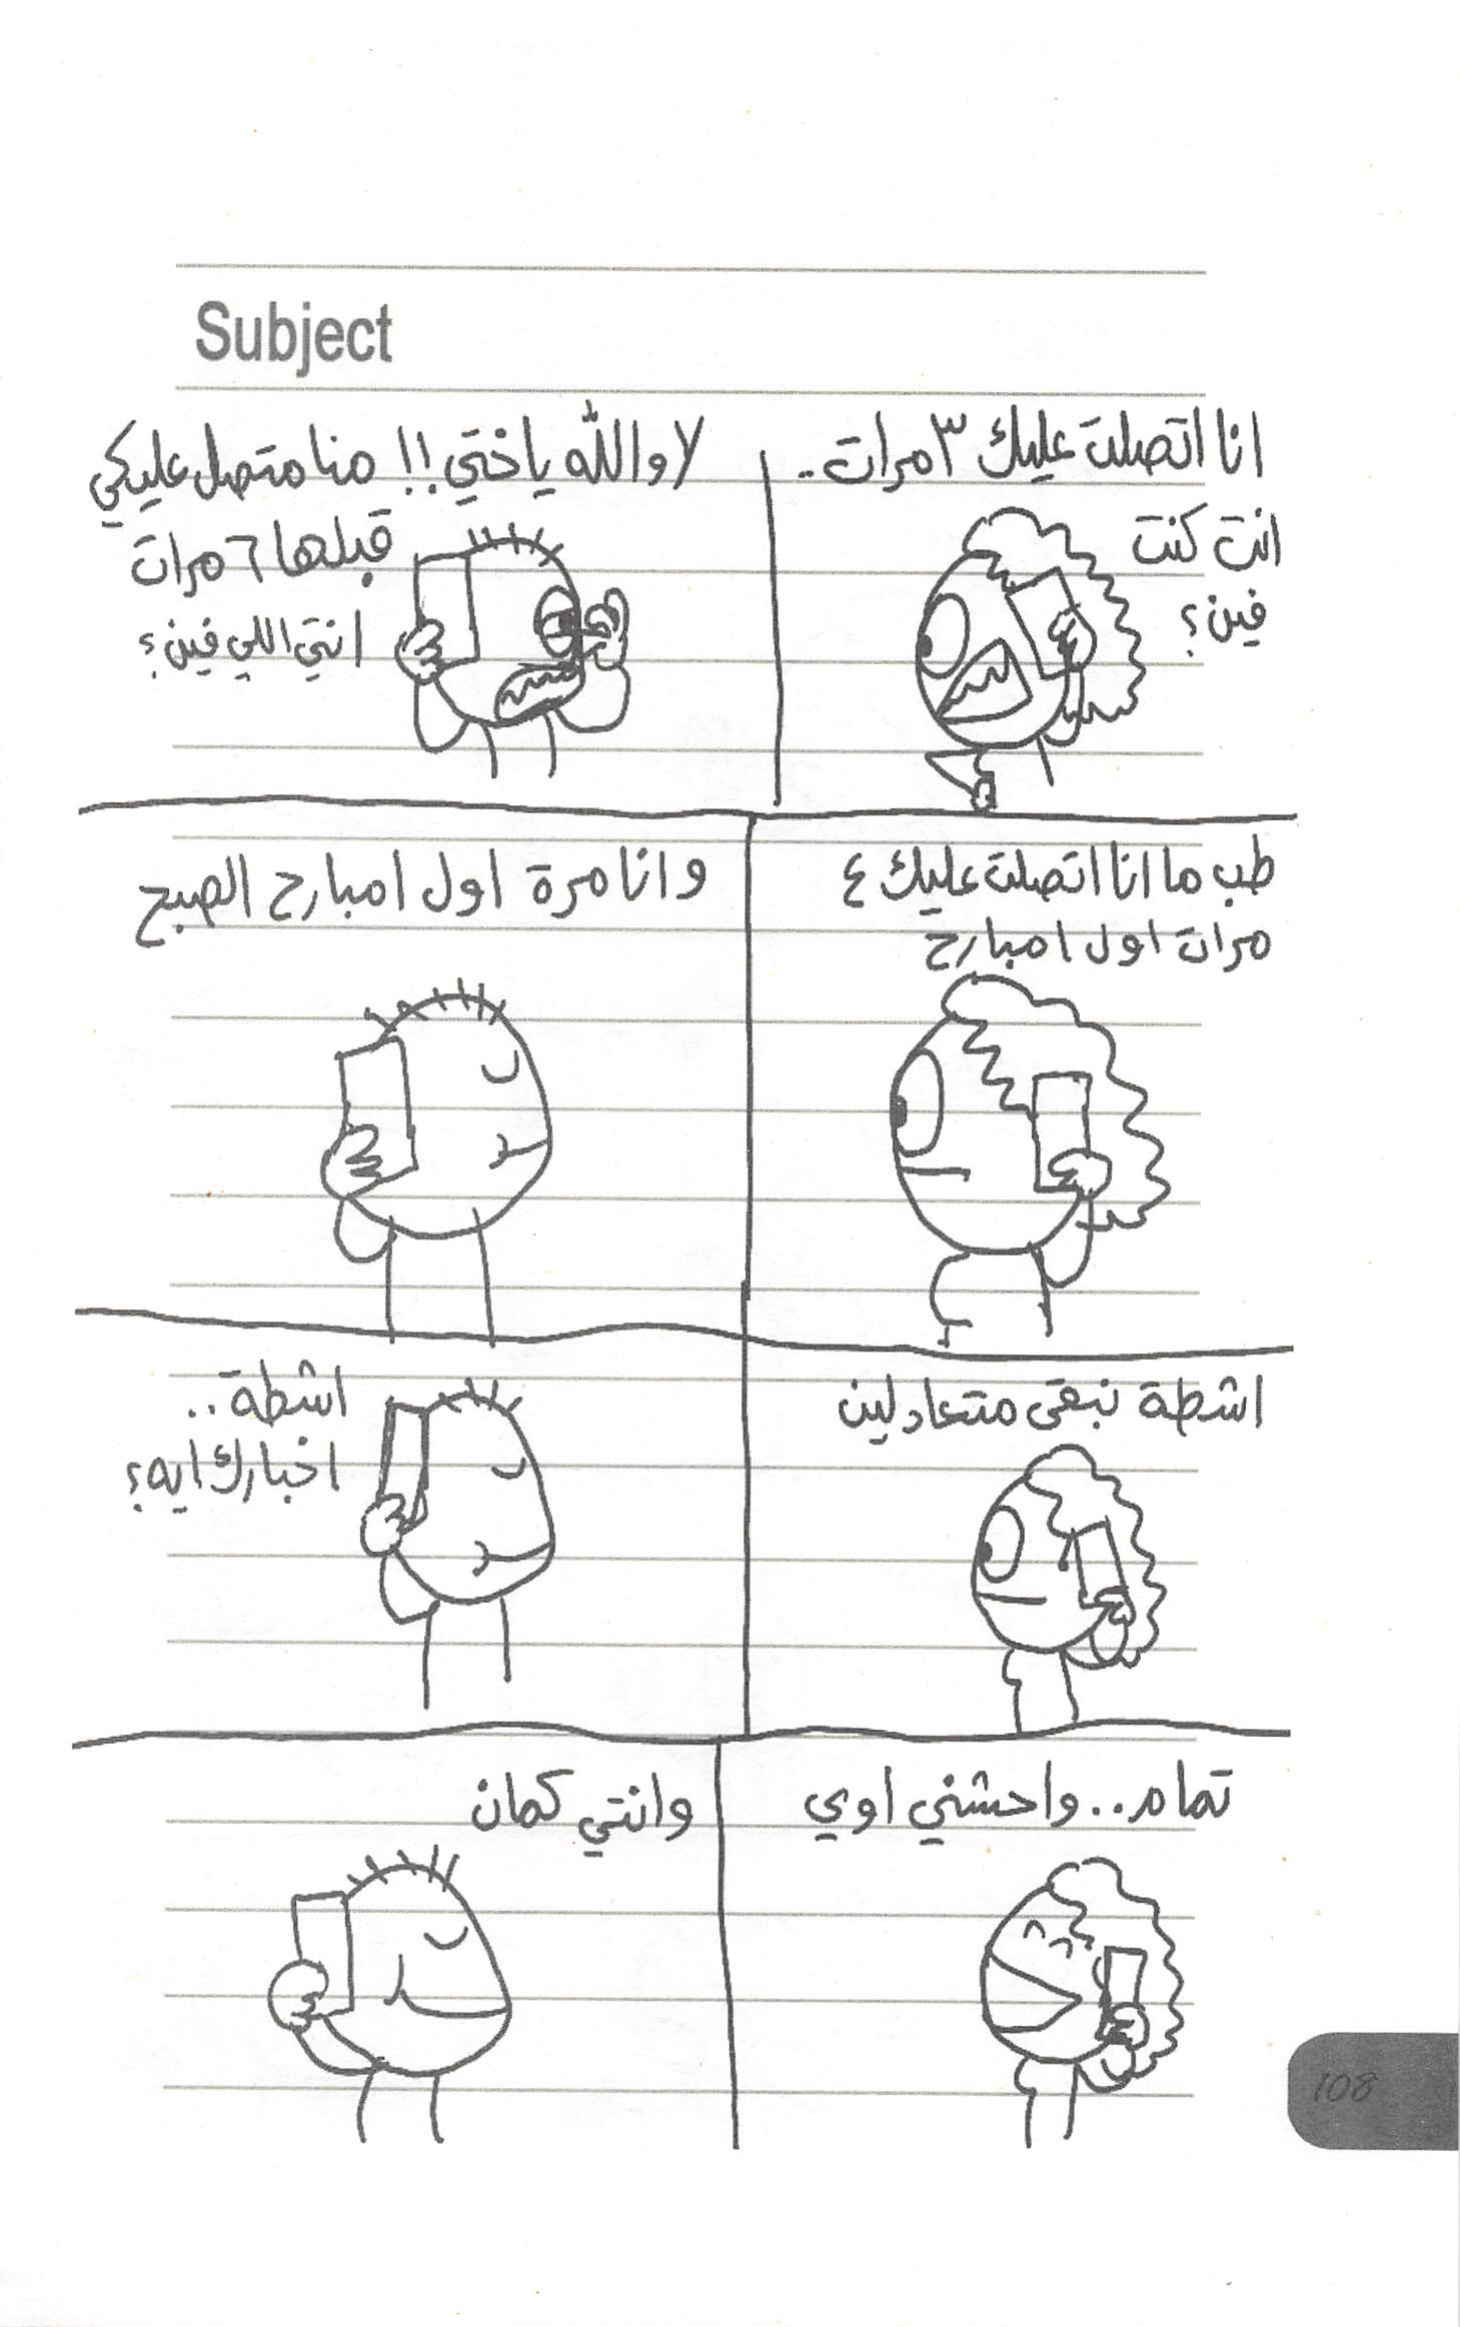 Subject
انا اتصلت عليك ٣ مرات..
انت كنت
فين؟
لا والله ياختي!! منا متصل عليكي
قبلها ٦ مرات
انتي اللي فين؟
طب ما انا اتصلت عليك ٤
مرات اول امبارح
وانا مرة اول امبارح الصبح
اشطة نبقى متعادلين
اشطة..
اخبارك ايه؟
تمام.. واحشني اوي
وانتي كمان
108